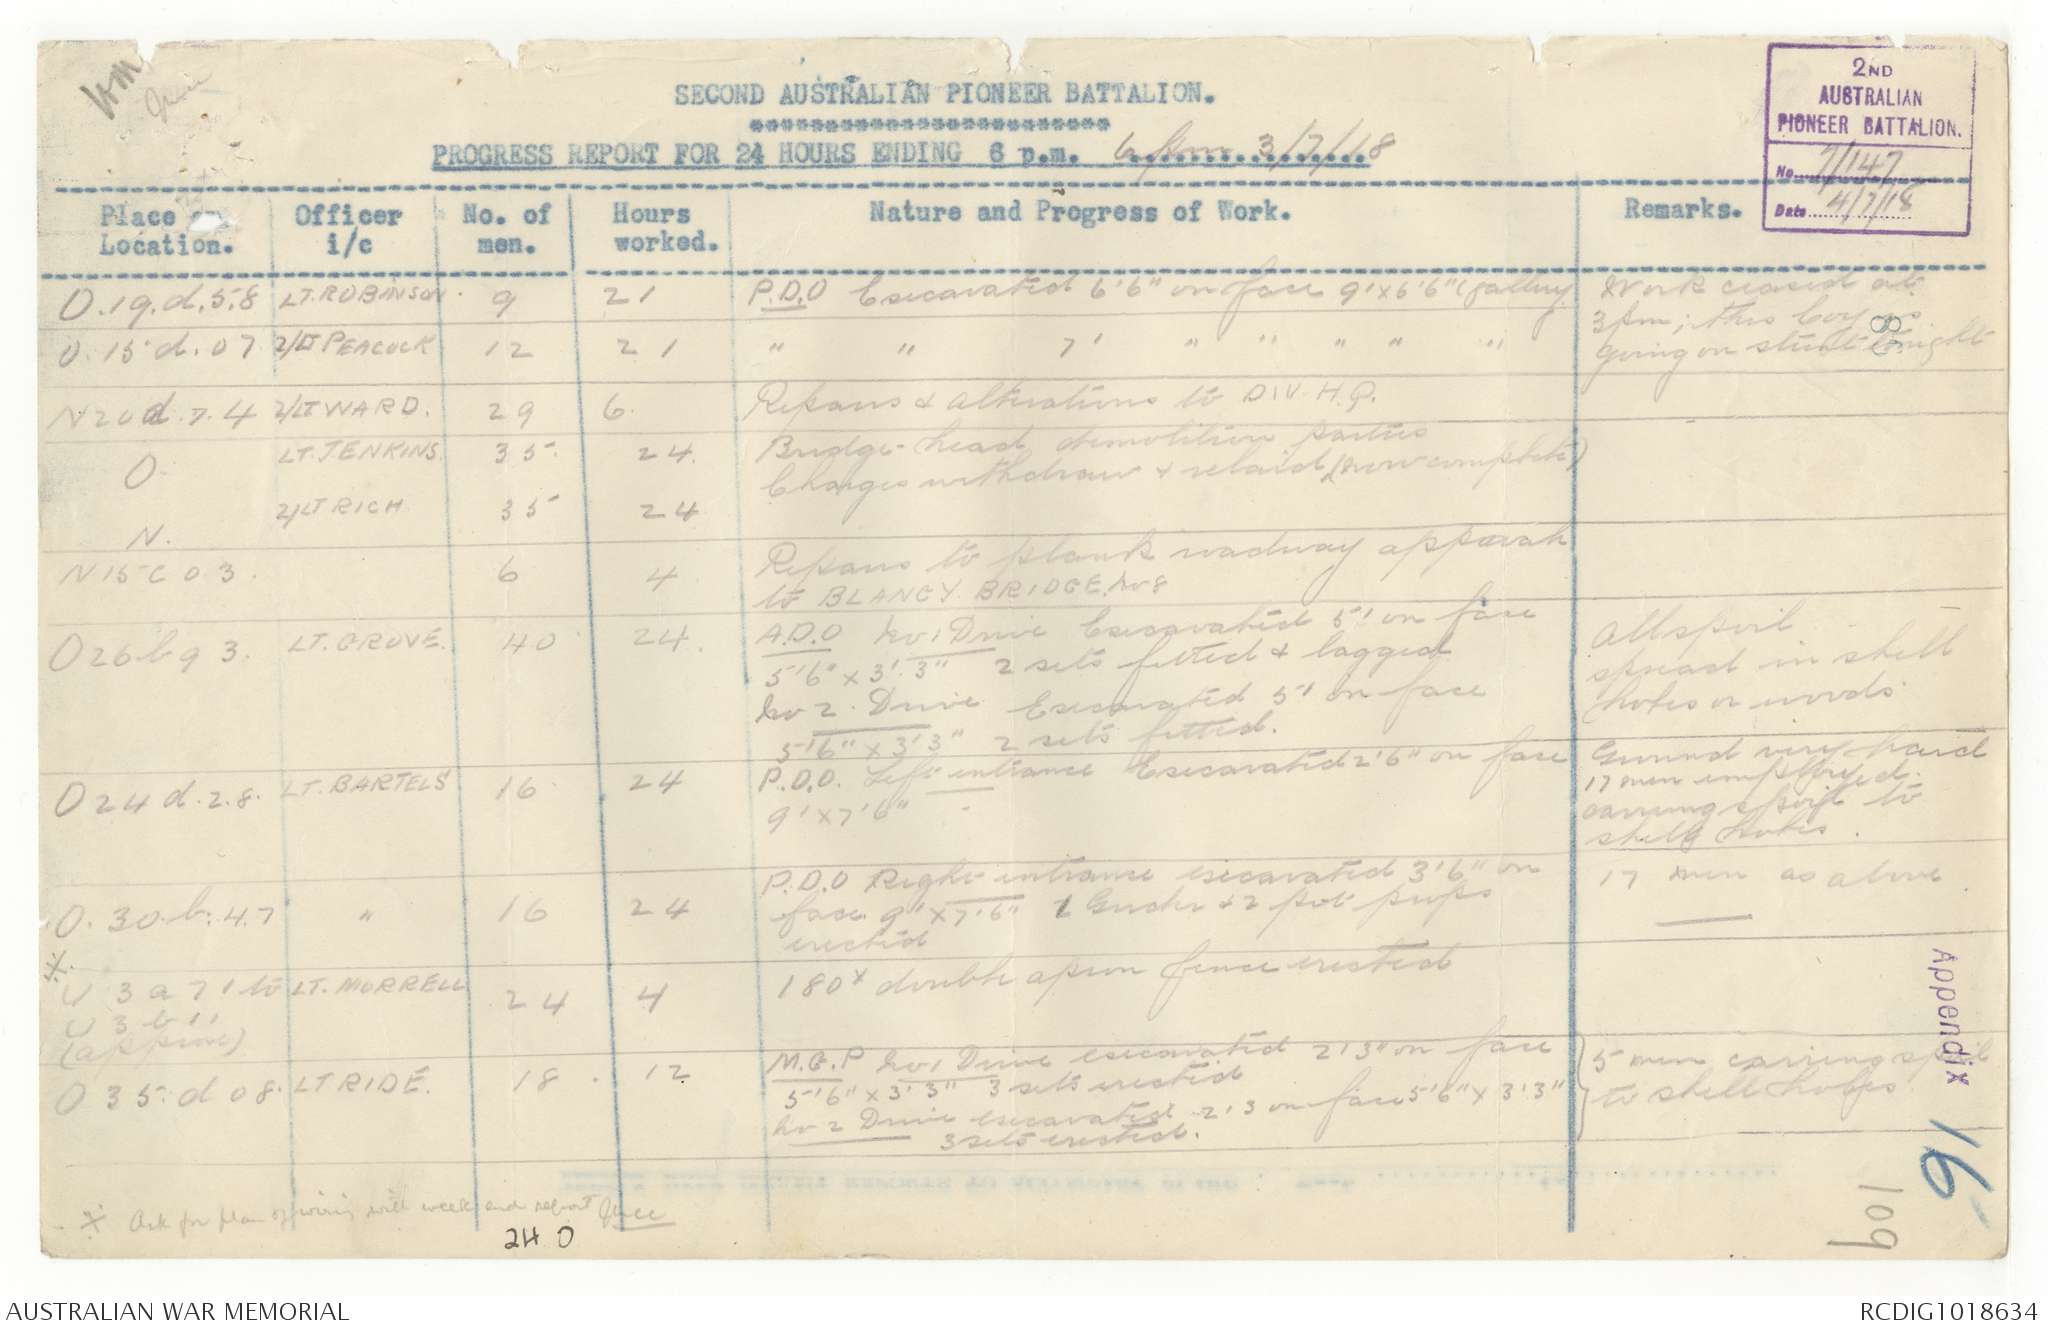 SECOND AUSTRALIAN PIONEER BATTALION.
************************
PROGRESS REPORT FOR 24 HOURS ENDING 6 p.m. 6 pm 3/7/18
2ND
AUSTRALIAN
PIONEER BATTALION.
No. 7/147
Date 4/7/18
Place or Location. Officer i/c No. of men. Hours worked. Nature and Progress of Work. Remarks.
O.19.d.5.8 LT. ROBINSON. 9 21 P.D.O Excavated 6'6" on face 9' x 6'6" (gallery Work ceased at
3pm; this Coy is
O.15.d.07 2/LT PEACOCK 12 21 " " 7' " " " " " going on stunt tonight
N20d.7.4 2/LT WARD. 29 6. Repairs & alterations to DIV. H.Q.
O. LT. JENKINS. 35. 24. Bridge-head demolition parties
Charges withdrawn & relaid (now complete)
N. 2/LT RICH 35 24
N15C03. 6 4 Repairs to plank roadway approach
to BLANGY BRIDGE. No 8
O26b93. LT. GROVE. 40 24. A.D.O No 1 Drive Excavated 5' on face
5'6" x 3'.3" 2 sets fitted & lagged
No 2. Drive Excavated 5' on face
5'6" x 3'3" 2 sets fitted.
All spoil
spread in shell
holes or woods
O24d.2.8. LT. BARTELS 16 24 P.D.O. Left entrance Excavated 2'6" on face
9' x 7'6"
Ground very hard
17 men employed
carrying spoil to
shell holes.
O.30.b.47 " 16 24 P.D.O Right entrance excavated 3'6" on
face. 9' x 7'6" 1 Girder & 2 pit props
erected
17 men as above
* U3a71 to LT. MORRELL 24 4 180x double apron fence erected
U3b11
(approx)
O35.d08. LT RIDE. 18. 12 M.G.P No 1 Drive excavated 2'3" on face
5'6" x 3'3" 3 sets erected
No 2 Drive excavated 2'3 on face 5'6" x 3'3"
3 sets erected.
5 men carrying spoil
to shell holes
* Ask for plan of wiring with week end report
240
Appendix 15
109
AUSTRALIAN WAR MEMORIAL
RCDIG1018634